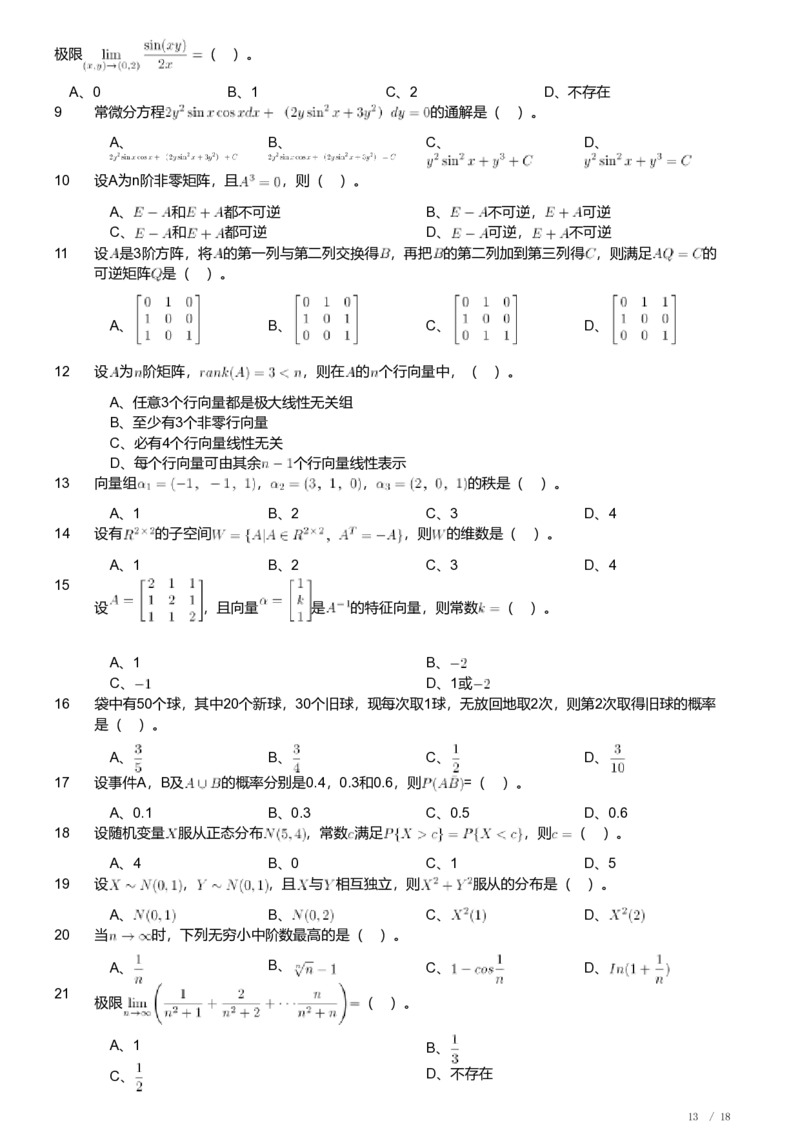 极限 $\lim\limits_{(x,y)\to(0,2)} \frac{\sin(xy)}{2x}$ =（ ）。
A、0 B、1 C、2 D、不存在
9 常微分方程$2y^2\sin x\cos xdx+$ $(2y\sin^2 x+3y^2)$ $dy=0$的通解是（ ）。
A、 B、 C、 D、
$2y^2\sin x\cos x+(2y\sin^2 x+3y^2)+C$ $y^2\sin^2 x+y^3+C$ $y^2\sin^2 x+y^3=C$
10 设A为n阶非零矩阵，且$A^3=0$，则（ ）。
A、$E-A$和$E+A$都不可逆 B、$E-A$不可逆，$E+A$可逆
C、$E-A$和$E+A$都可逆 D、$E-A$可逆，$E+A$不可逆
11 设$A$是3阶方阵，将$A$的第一列与第二列交换得$B$，再把$B$的第二列加到第三列得$C$，则满足$AQ=C$的
可逆矩阵$Q$是（ ）。
A、$\begin{bmatrix}0&1&0\\1&0&0\\1&0&1\end{bmatrix}$ B、$\begin{bmatrix}0&1&0\\1&0&1\\0&0&1\end{bmatrix}$ C、$\begin{bmatrix}0&1&0\\1&0&0\\0&1&1\end{bmatrix}$ D、$\begin{bmatrix}0&1&1\\1&0&0\\0&0&1\end{bmatrix}$
12 设$A$为$n$阶矩阵，$rank(A)=3<n$，则在$A$的$n$个行向量中，（ ）。
A、任意3个行向量都是极大线性无关组
B、至少有3个非零行向量
C、必有4个行向量线性无关
D、每个行向量可由其余$n-1$个行向量线性表示
13 向量组$\alpha_1=(-1，-1，1)$，$\alpha_2=(3，1，0)$，$\alpha_3=(2，0，1)$的秩是（ ）。
A、1 B、2 C、3 D、4
14 设有$R^{2\times2}$的子空间$W=\{A|A\in R^{2\times2}，A^T=-A\}$，则$W$的维数是（ ）。
A、1 B、2 C、3 D、4
15
设$A=\begin{bmatrix}2&1&1\\1&2&1\\1&1&2\end{bmatrix}$，且向量$\alpha=\begin{bmatrix}1\\k\\1\end{bmatrix}$是$A^{-1}$的特征向量，则常数$k=$（ ）。
A、1 B、$-2$
C、$-1$ D、1或$-2$
16 袋中有50个球，其中20个新球，30个旧球，现每次取1球，无放回地取2次，则第2次取得旧球的概率
是（ ）。
A、$\frac{3}{5}$ B、$\frac{3}{4}$ C、$\frac{1}{2}$ D、$\frac{3}{10}$
17 设事件A，B及$A\cup B$的概率分别是0.4，0.3和0.6，则$P(A\bar{B})$=（ ）。
A、0.1 B、0.3 C、0.5 D、0.6
18 设随机变量$X$服从正态分布$N(5,4)$，常数$c$满足$P\{X>c\}=P\{X<c\}$，则$c=$（ ）。
A、4 B、0 C、1 D、5
19 设$X\sim N(0,1)$，$Y\sim N(0,1)$，且$X$与$Y$相互独立，则$X^2+Y^2$服从的分布是（ ）。
A、$N(0,1)$ B、$N(0,2)$ C、$X^2(1)$ D、$X^2(2)$
20 当$n\to\infty$时，下列无穷小中阶数最高的是（ ）。
A、$\frac{1}{n}$ B、$\sqrt[n]{n}-1$ C、$1-cos\frac{1}{n}$ D、$In(1+\frac{1}{n})$
21 极限$\lim\limits_{n\to\infty}\left(\frac{1}{n^2+1}+\frac{2}{n^2+2}+\cdots\frac{n}{n^2+n}\right)=$（ ）。
A、1 B、$\frac{1}{3}$
C、$\frac{1}{2}$ D、不存在
13 / 18